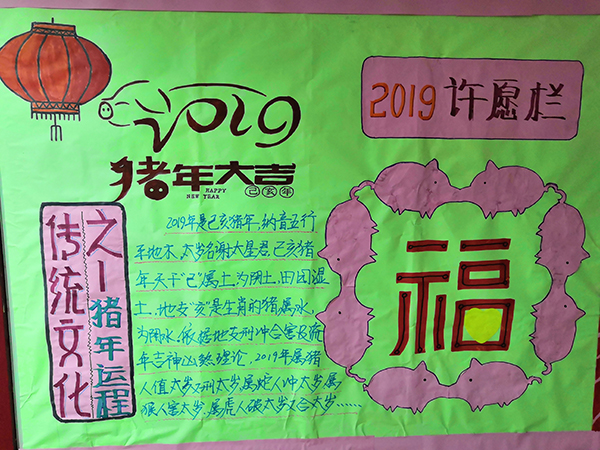 2019
猪年大吉
HAPPY
NEW YEAR
己亥年
2019许愿栏
传统文化
之一猪年运程
2019年是己亥猪年,纳音五行
平地木,太岁名谢太星君,己亥猪
年天干“己”属土,为阴土,田园湿
土,地支“亥”是生肖的猪属水,
为阴水,依据地支刑冲合害及流
年吉神凶煞理论,2019年属猪
人值太岁又刑太岁,属蛇人冲太岁,属
猴人害太岁,属虎人破太岁又合太岁……
福